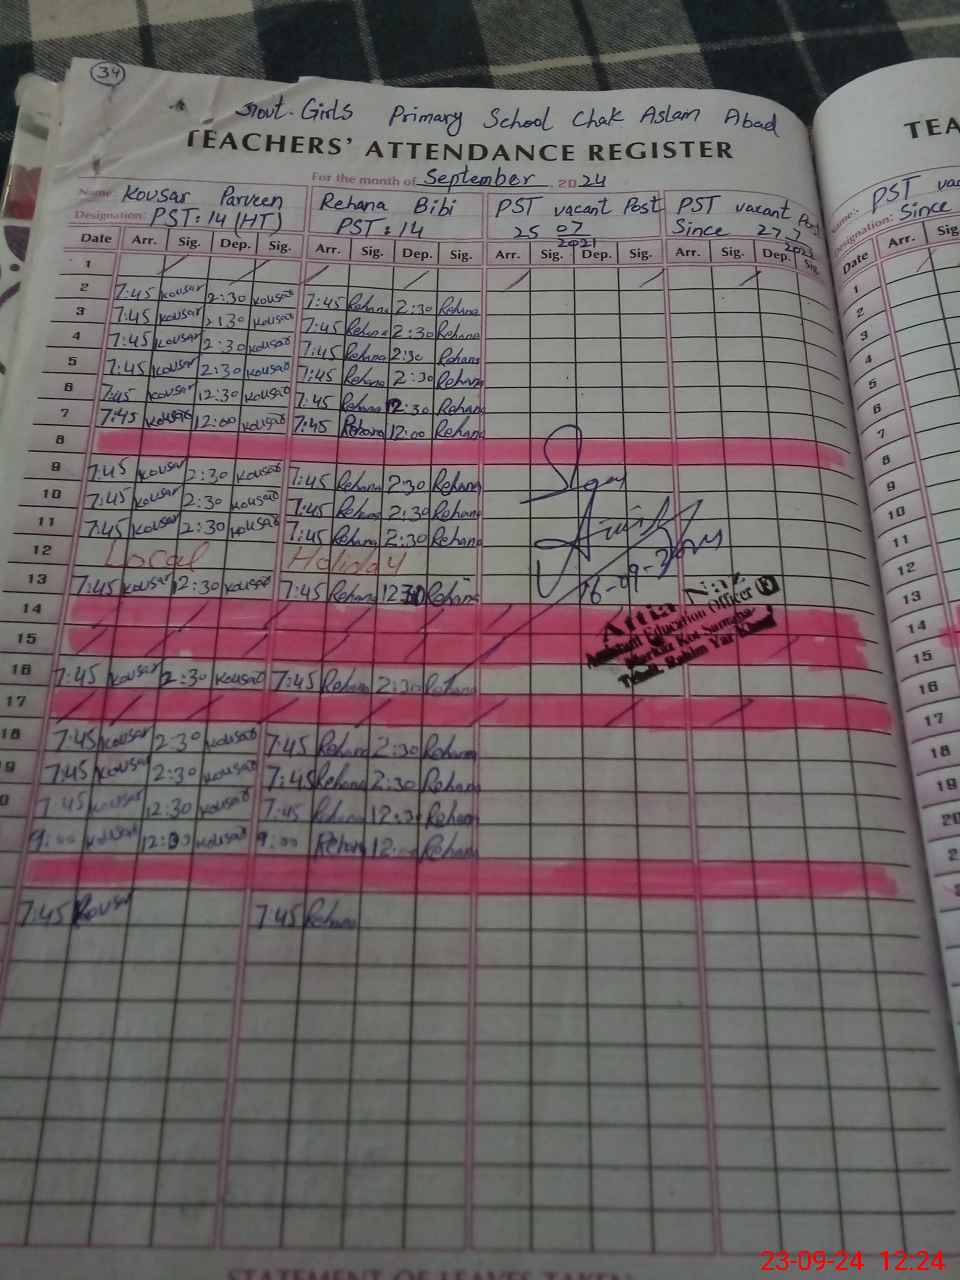 34
Govt. Girls Primary School Chak Aslam Abad
TEACHERS' ATTENDANCE REGISTER
For the month of September, 2024
Name: Kousar Parveen Rehana Bibi PST vacant Post PST vacant Post
Designation: PST: 14 (HT) PST: 14 25 07 2021 Since 27.7
Date Arr. Sig. Dep. Sig. Arr. Sig. Dep. Sig. Arr. Sig. Dep. Sig. Arr. Sig. Dep. Sig.
1
2 7:45 Kousar 2:30 Kousar 7:45 Rehana 2:30 Rehana
3 7:45 Kousar 2:30 Kousar 7:45 Rehana 2:30 Rehana
4 7:45 Kousar 2:30 Kousar 7:45 Rehana 2:30 Rehana
5 7:45 Kousar 2:30 Kousar 7:45 Rehana 2:30 Rehana
6 7:45 Kousar 12:30 Kousar 7:45 Rehana 12:30 Rehana
7 7:45 Kousar 12:00 Kousar 7:45 Rehana 12:00 Rehana
8
9 7:45 Kousar 2:30 Kousar 7:45 Rehana 2:30 Rehana
10 7:45 Kousar 2:30 Kousar 7:45 Rehana 2:30 Rehana
11 7:45 Kousar 2:30 Kousar 7:45 Rehana 2:30 Rehana
12 Local Holiday
13 7:45 Kousar 12:30 Kousar 7:45 Rehana 12:30 Rehana
16-09-
14
Assistant Education Officer
15
Markaz Kot Samaba
Tehsil. Rahim Yar Khan
16 7:45 Kousar 2:30 Kousar 7:45 Rehana 2:30 Rehana
17
18 7:45 Kousar 2:30 Kousar 7:45 Rehana 2:30 Rehana
9 7:45 Kousar 2:30 Kousar 7:45 Rehana 2:30 Rehana
0 7:45 Kousar 12:30 Kousar 7:45 Rehana 12:30 Rehana
9:00 Kousar 12:00 Kousar 9:00 Rehana 12:00 Rehana
7:45 Kousar 7:45 Rehana
STATEMENT OF LEAVES TAKEN
TEA
Name:- PST vac
Designation: Since
Date Arr. Sig.
1
2
3
4
5
6
7
8
9
10
11
12
13
14
15
16
17
18
19
20
2
23-09-24 12:24